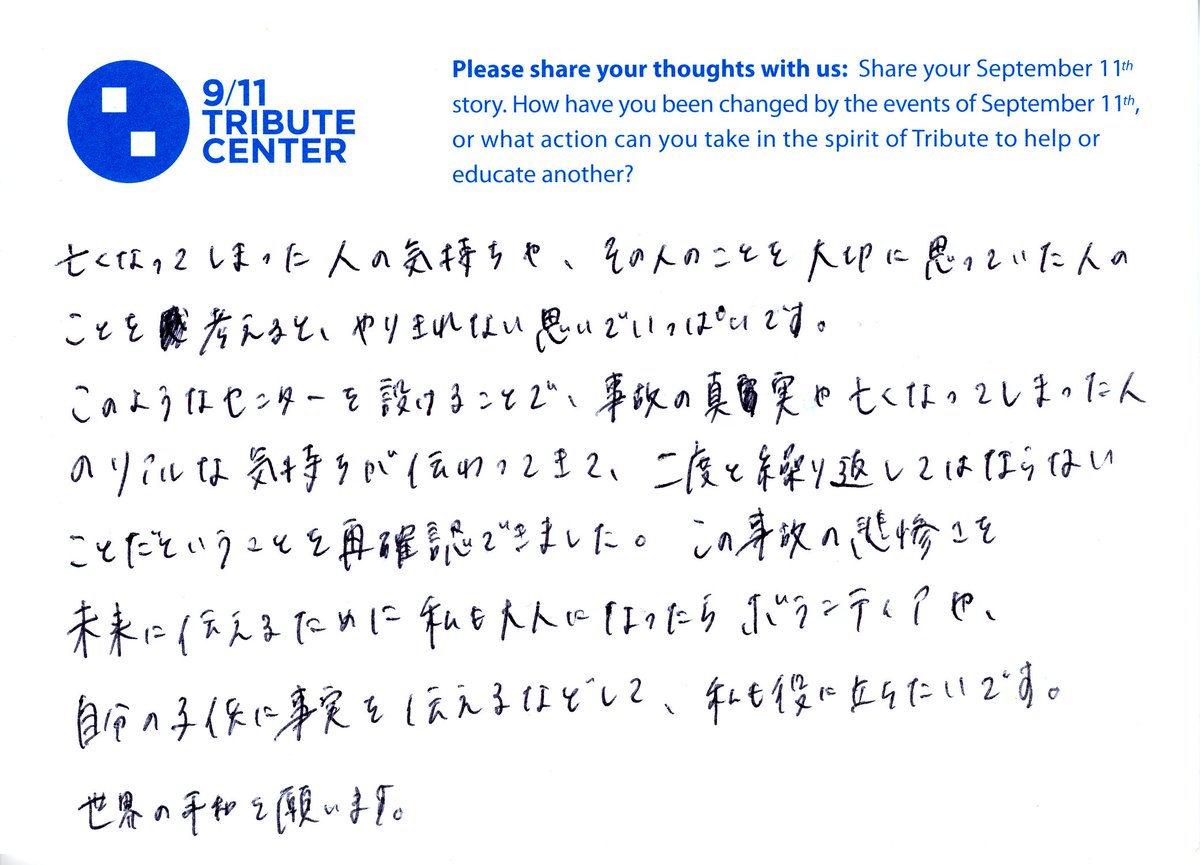 9/11
TRIBUTE
CENTER
Please share your thoughts with us: Share your September 11th
story. How have you been changed by the events of September 11th,
or what action can you take in the spirit of Tribute to help or
educate another?
亡くなってしまった人の気持ちや、その人のことを大切に思っていた人の
ことを考えると、やりきれない思いでいっぱいです。
このようなセンターを設けることで、事故の真実や亡くなってしまった人
のリアルな気持ちが伝わってきて、二度と繰り返してはならない
ことだということを再確認できました。この事故の悲惨さを
未来に伝えるために私も大人になったらボランティアや、
自分の子供に事実を伝えるなどして、私も役に立ちたいです。
世界の平和を願います。